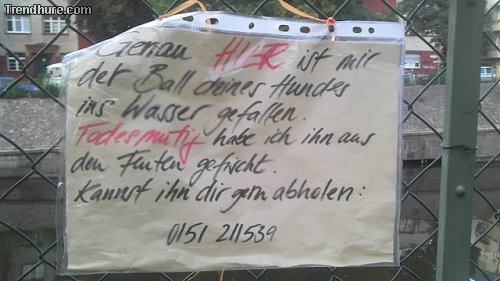 Trendhure.com
Genau HIER ist mir
der Ball deines Hundes
ins Wasser gefallen.
Todesmutig habe ich ihn aus
den Fluten gefischt.
Kannst ihn dir gern abholen:
0151 211539